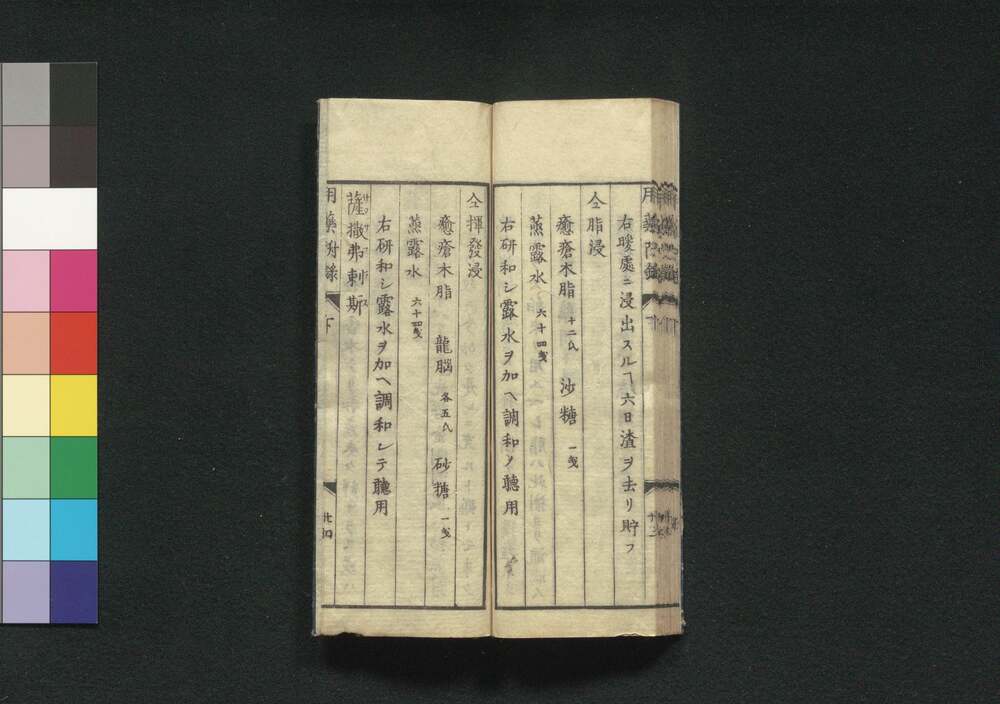 右暖處ニ浸出スルヿ六日渣ヲ去リ貯フ
仝脂浸
癒瘡木脂 十二氏 沙糖 一戔
蒸露水 六十四戔
右研和シ露水ヲ加ヘ調和ノ聴用
仝揮發浸
癒瘡木脂 龍脳 各五氏 砂糖 一戔
蒸露水 六十四戔
右研和シ露水ヲ加ヘ調和シテ聴用
薩撒弗剌斯
用藥附錄 下 廿四